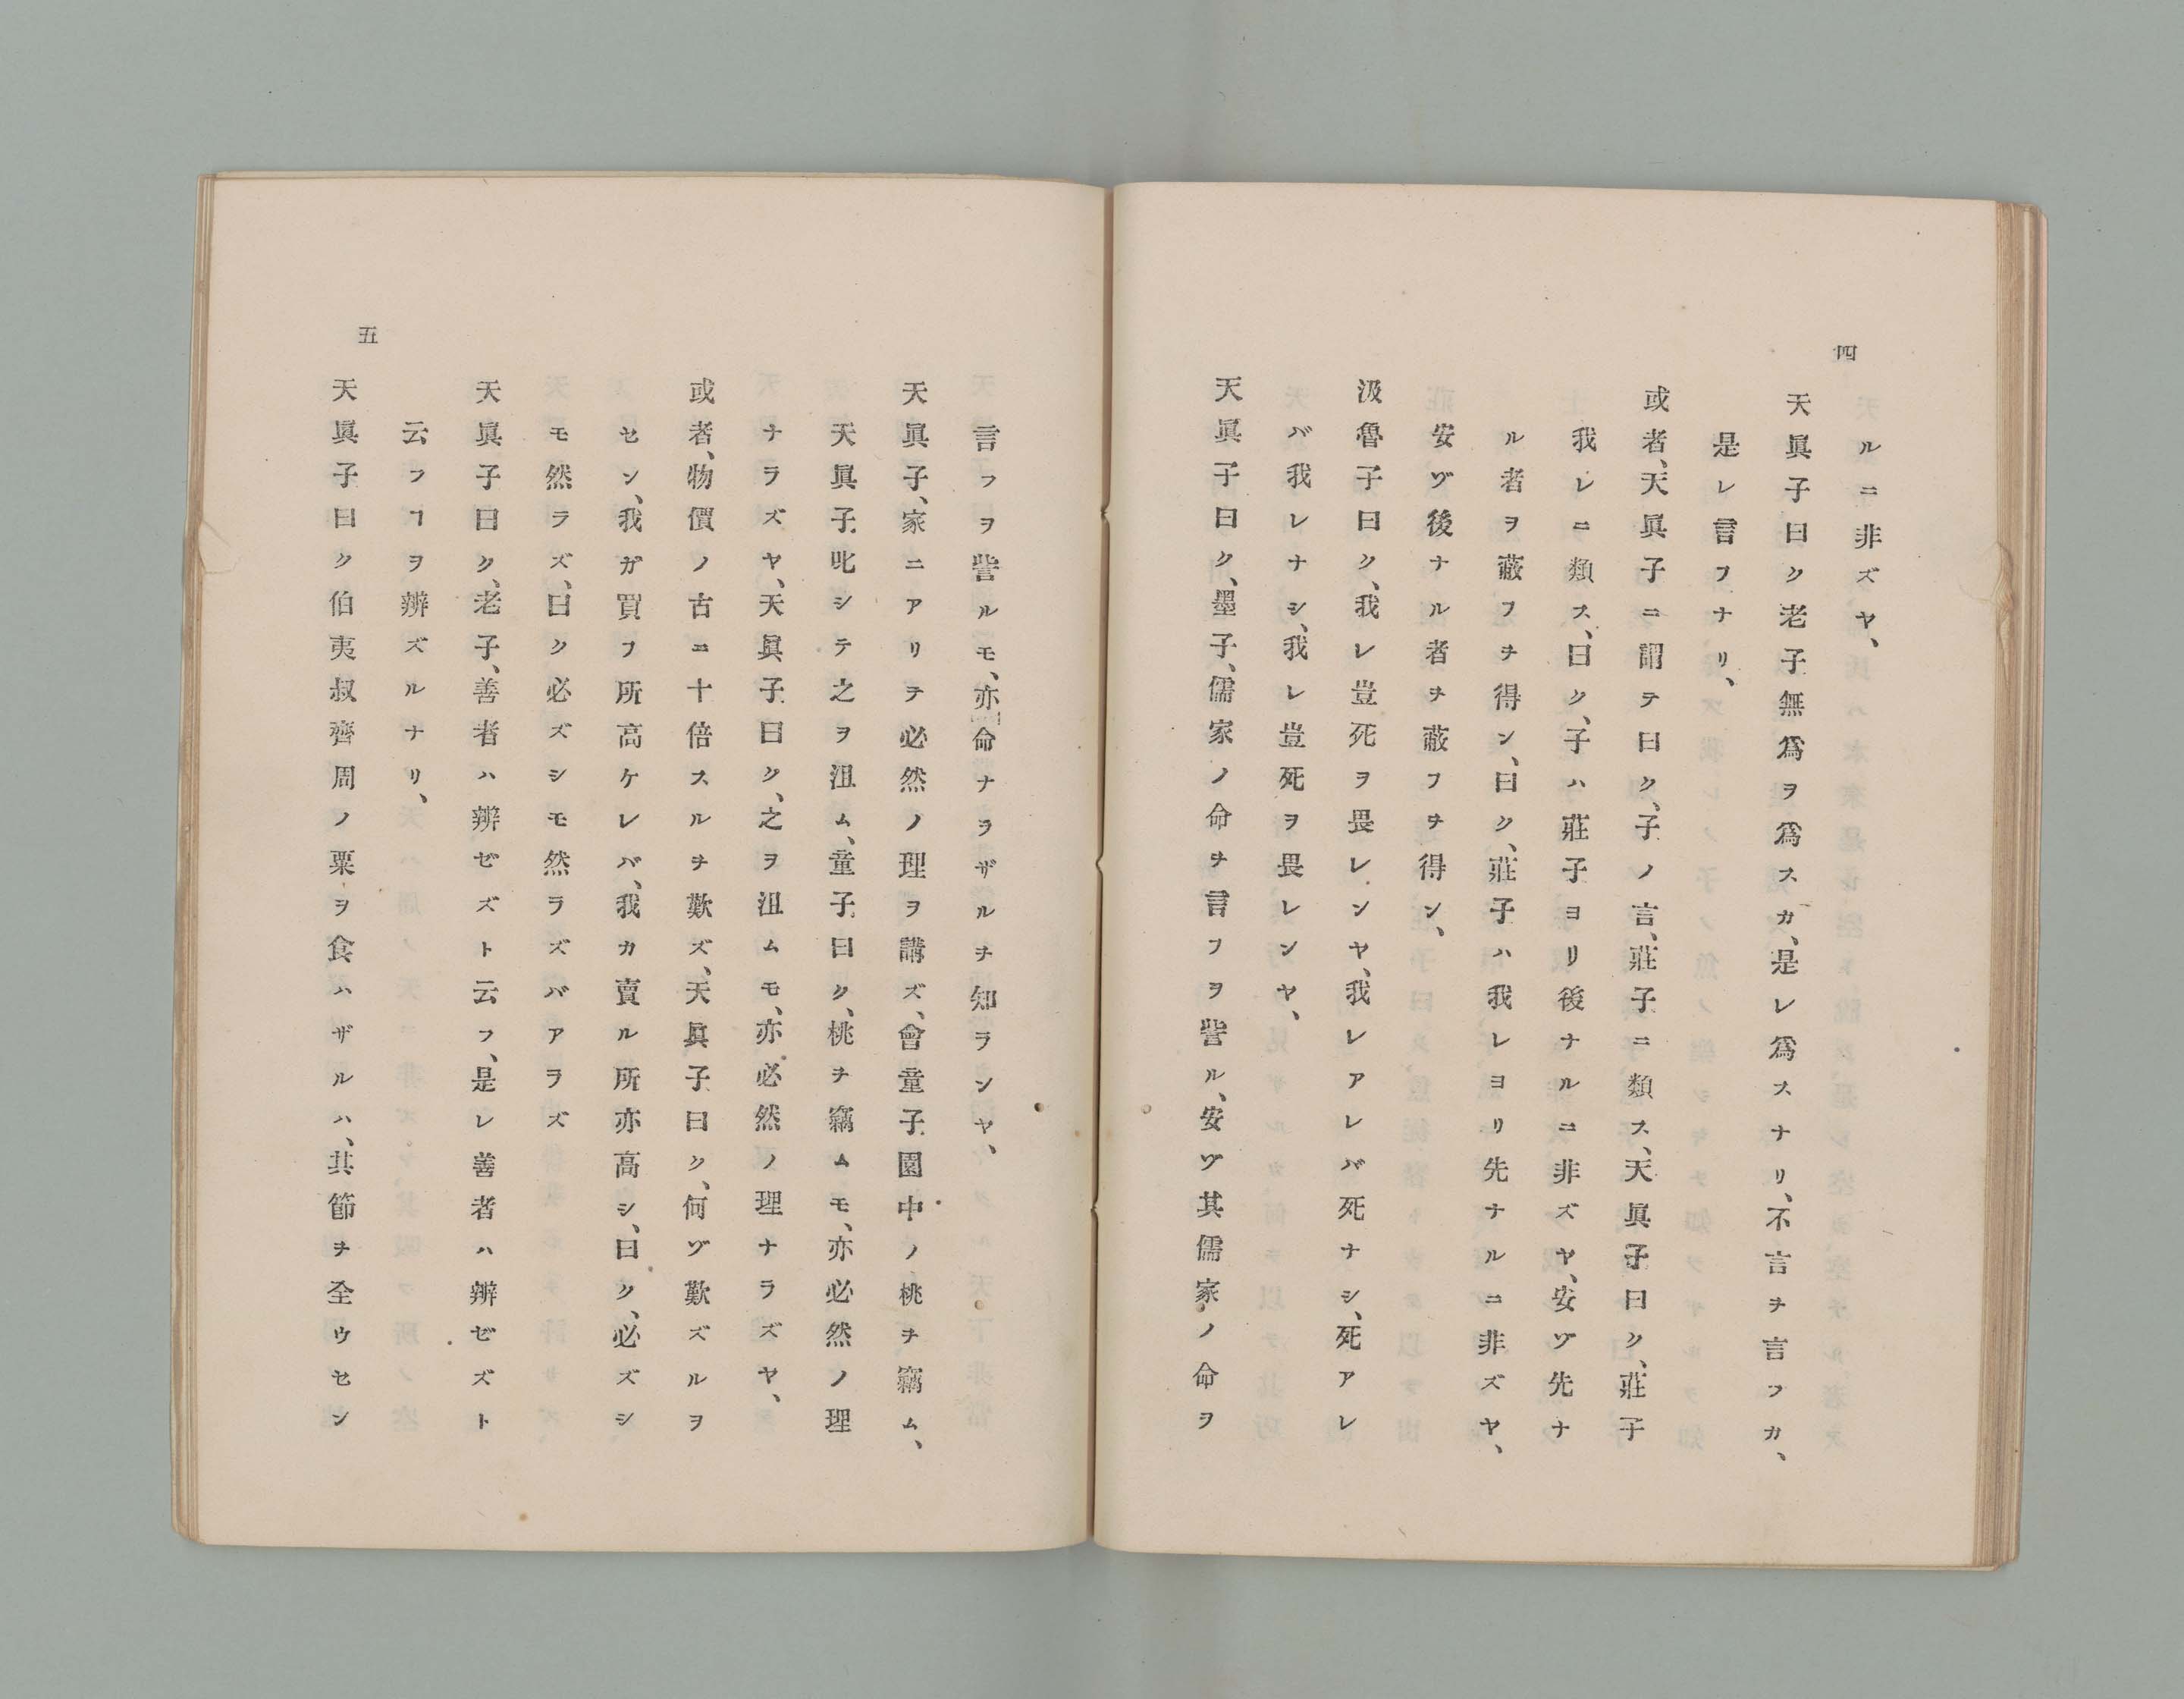 四
ルニ非ズヤ、
天眞子曰ク老子無爲ヲ爲スカ、是レ爲スナリ、不言ヲ言フカ、
是レ言フナリ、
或者、天眞子ニ謂テ曰ク、子ノ言、莊子ニ類ス、天眞子曰ク、莊子
我レニ類ス、曰ク、子ハ莊子ヨリ後ナルニ非ズヤ、安ヅ先ナ
ル者ヲ蔽フヲ得ン、曰ク、莊子ハ我レヨリ先ナルニ非ズヤ、
安ヅ後ナル者ヲ蔽フヲ得ン、
汲魯子曰ク、我レ豈死ヲ畏レンヤ、我レアレバ死ナシ、死アレ
バ我レナシ、我レ豈死ヲ畏レンヤ、
天眞子曰ク、墨子、儒家ノ命ヲ言フヲ訾ル、安ヅ其儒家ノ命ヲ
言フヲ訾ルモ、亦命ナラザルヲ知ランヤ、
天眞子、家ニアリテ必然ノ理ヲ講ズ、會童子園中ノ桃ヲ竊ム、
天眞子叱シテ之ヲ沮ム、童子曰ク、桃ヲ竊ムモ、亦必然ノ理
ナラズヤ、天眞子曰ク、之ヲ沮ムモ、亦必然ノ理ナラズヤ、
或者、物價ノ古ニ十倍スルヲ歎ズ、天眞子曰ク、何ヅ歎ズルヲ
セン、我ガ買フ所高ケレバ、我カ賣ル所亦高シ、曰ク、必ズシ
モ然ラズ、曰ク必ズシモ然ラズバアラズ
天眞子曰ク、老子、善者ハ辨ゼズト云フ、是レ善者ハ辨ゼズト
云フヿヲ辨ズルナリ、
天眞子曰ク伯夷叔齊周ノ粟ヲ食ハザルハ、其節ヲ全ウセン
五